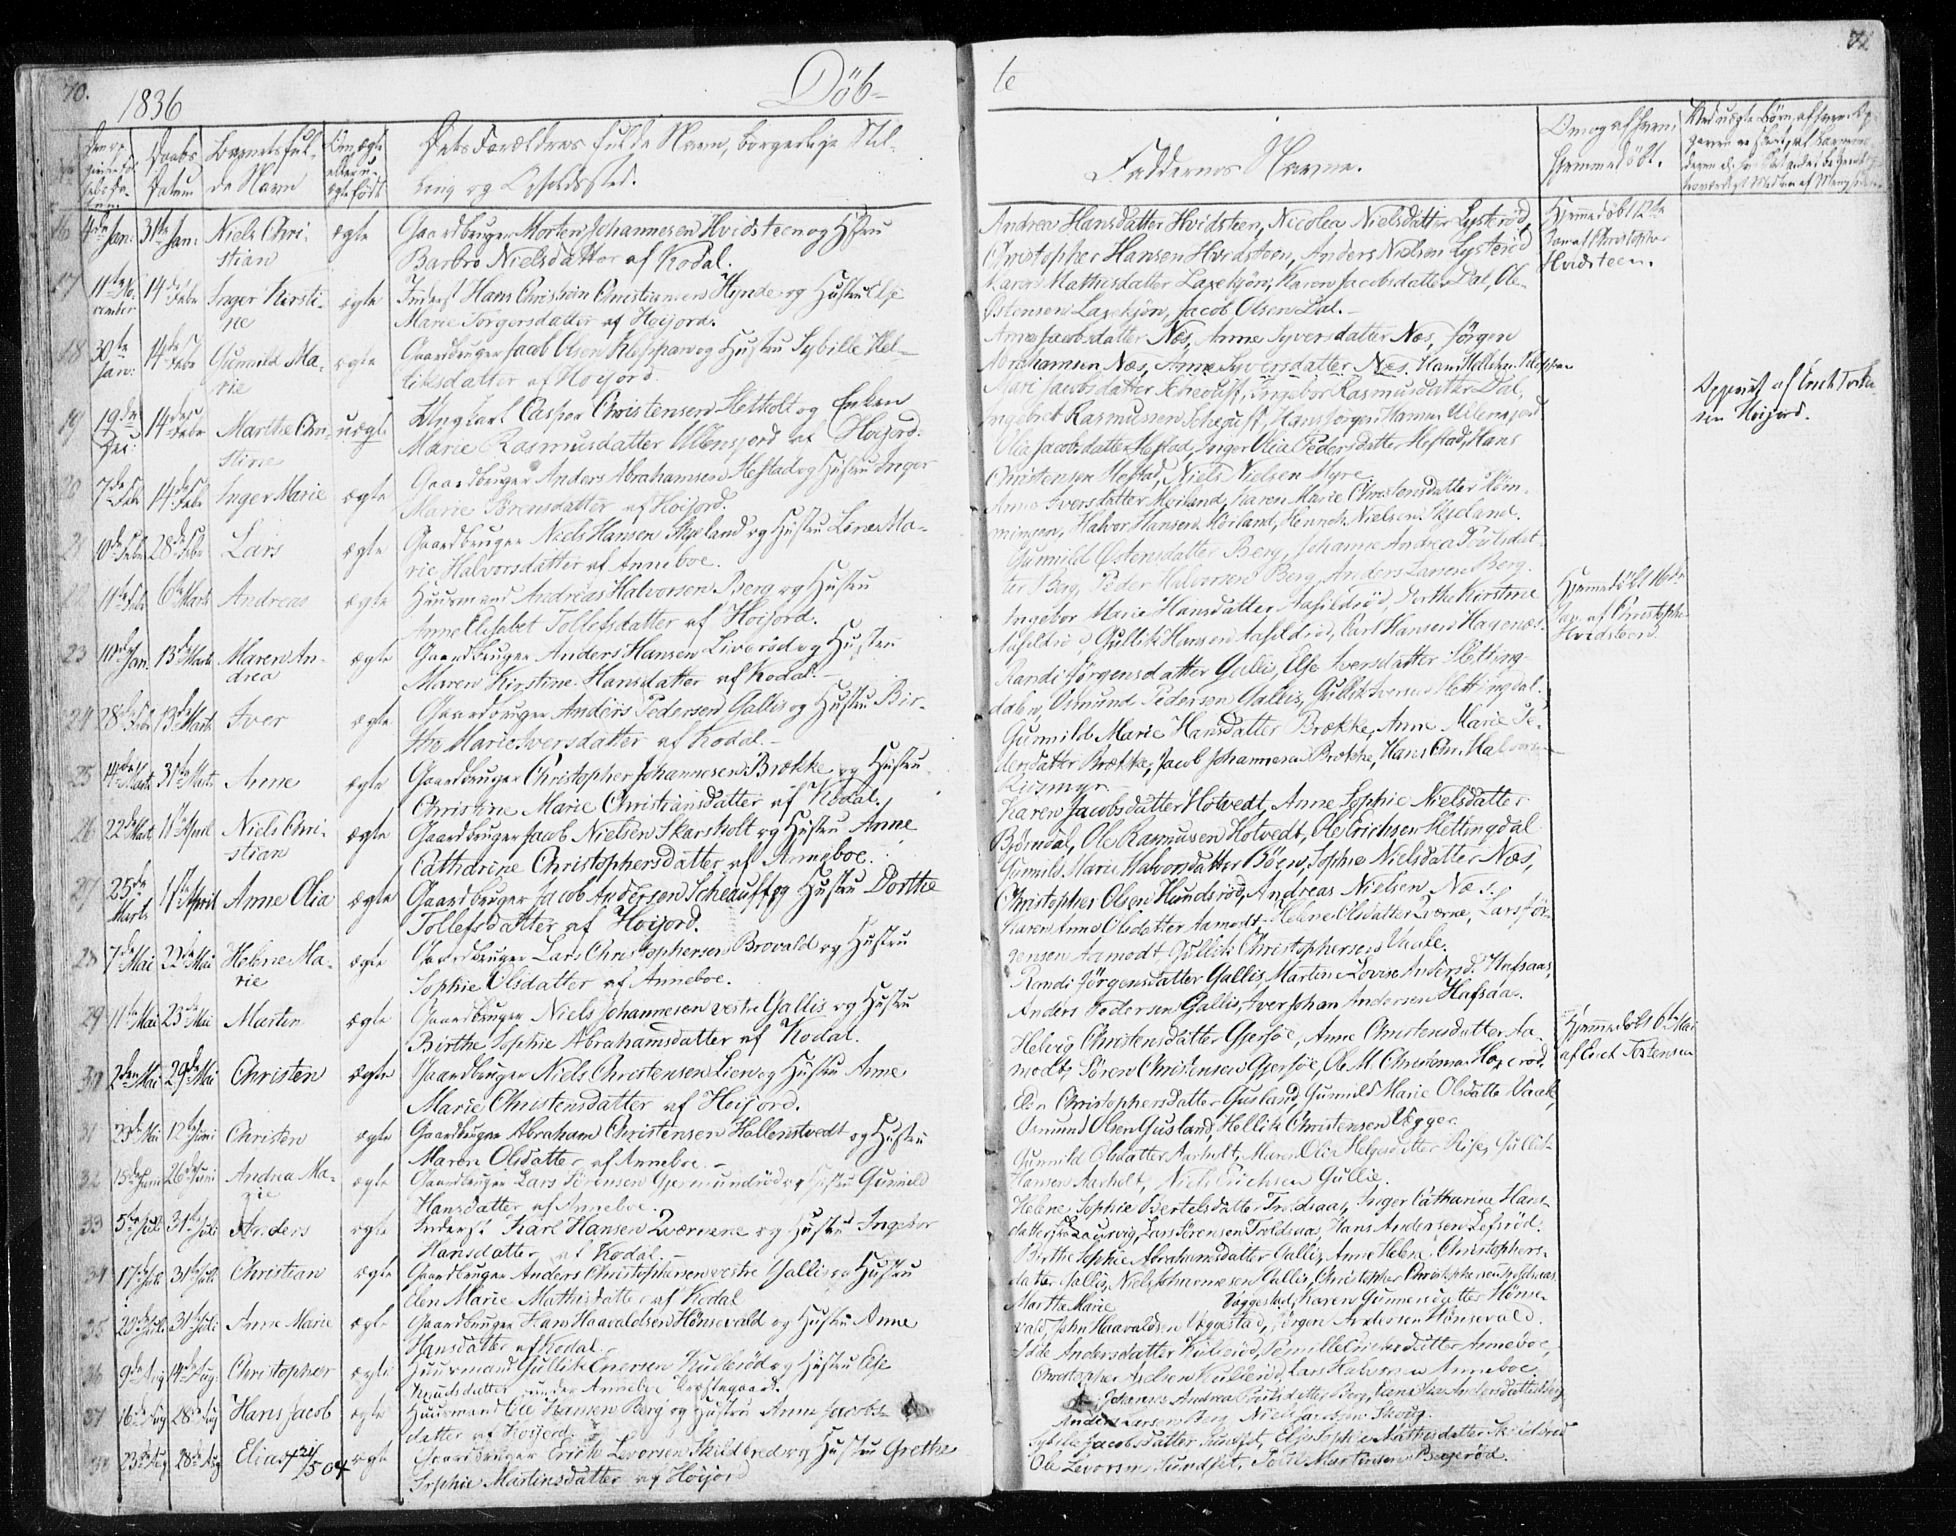 70.
1836
Döb-
Daabs
Datum
Barnets ful-
de Navn
Om ægte
eller u-
ægte født
Dets Forældres fulde Navn, borgerlige Stil-
ling og Opholdssted.
16 4de Jan: 31te Jan: Niels Chri-
stian
ægte
Gaardbruger Morten Johannesen Hvidsteen og Hustru
Barbro Nielsdatter af Kodal.
17 11te No-
vember
14de Febr Inger Kirsti-
ne
ægte
Inderst Hans Christian Christiansen Hynde og Hustru Else
Marie Jørgersdatter af Høijord.
18 30te
Jan:
14de Febr Gunnild Ma-
rie
ægte
Gaardbruger Jacob Olsen Kleppan og Hustru Sybille Hel-
liksdatter af Høijord.
19 19de
Dec:
14de Febr Marthe Chri-
stine
uægte
Ungkarl Casper Christensen Stetholt og Enken
Marie Rasmusdatter Ullensjord af Høijord.
20 7de Febr 14de Febr Inger Marie ægte
Gaardbruger Anders Abrahamsen Hestad og Hustru Inger
Marie Sørensdatter af Høijord.
21 10de Febr 28de Febr Lars ægte
Gaardbruger Niels Hansen Skjeland og Hustru Lene Ma-
rie Halvorsdatter af Anneboe.
22 11te Febr 6te Marts Andreas ægte
Huusmand Andreas Halvorsen Berg og Hustru
Anne Elisabet Tollefsdatter af Høijord.
23 10de Jan: 13de Marts Maren An-
drea
ægte
Gaardbruger Anders Hansen Liverød og Hustru
Maren Kirstine Hansdatter af Kodal.
24 28de Febr 13de Marts Iver ægte
Gaardbruger Anders Pedersen Gallis og Hustru Bir-
the Marie Iversdatter af Kodal.
25 14de Marts 31te Marts Anne ægte
Gaardbruger Christopher Johannesen Brække og Hustru
Christine Marie Christiansdatter af Kodal.
26 22de Marts 17de April Niels Chri-
stian
ægte
Gaardbruger Jacob Nielsen Skarsholt og Hustru Anne
Cathdrine Christophersdatter af Anneboe.
27 25de
Marts
17de April Anne Olia ægte
Gaardbruger Jacob Andersen Scheauft og Hustru Dorthe
Tollefsdatter af Høijord.
28 7de Mai 22de Mai Helene Ma-
rie
ægte
Gaardbruger Lars Christophersen Brovald og Hustru
Sophie Olsdatter af Anneboe.
29 11te Mai 23de Mai Martin ægte
Gaardbruger Niels Johannesen vestre Gallis og Hustru
Birthe Sophie Abrahamsdatter af Kodal.
30 2den Mai 29de Mai Christen ægte
Gaardbruger Niels Christensen Lien og Hustru Anne
Marie Christensdatter af Høijord.
31 23de Mai 12te Juni Christen ægte
Gaardbruger Abraham Christensen Hallenstvedt og Hustru
Maren Olsdatter af Anneboe.
32 15de Juni 26de Juni Andrea Ma-
rie
ægte
Gaardbruger Lars Sørensen Gjermundrød og Hustru Gunnild
Hansdatter af Anneboe.
33 5te Juli 31te Juli Anders ægte
Inderst Karl Hansen Qværnene og Hustru Ingebor
Hansdatter af Kodal.
34 17de Juli 31te Juli Christian ægte
Gaardbruger Anders Christophersen vestre Gallis og Hustru
Elen Marie Mathisdatter af Kodal
35 20de Juli 31te Juli Anne Marie ægte
Gaardbruger Hans Haavaldsen Hønsevald og Hustru Anne
Hansdatter af Kodal.
36 9de Aug 14de Aug: Christopher ægte
Huusmand Gullik Enersen Kullerød og Hustru Else
Knudsdatter under Anneboe Præstegaard.
37 16de Aug 28de Aug Hans Jacob ægte
Huusmand Ole Hansen Berg og Hustru Anne Jacobs-
datter af Høijord.
38 23de Aug 28de Aug Elias +24/5 04 ægte
Gaardbruger Erich Levorsen Skildbred og Hustru Grethe
Sophie Martinsdatter af Høijord
te
Faddernes Navne.
Om og af hvem
hjemmedöbt.
Andrea Hansdatter Hvidsteen, Nicolea Nielsdatter Lysterød,
Christopher Hansen Hvidsteen, Anders Nielsen Lysterød
Hjemmedöbt 12te
Jan af Christopher
Hvidsteen.
Karen Mathisdatter Laxekjøn, Karen Jacobsdatter Dal, Ole
Østensen Laxekjøn, Jacob Olsen Dal.
Anne Jacobsdatter Næs, Anne Syversdatter Næs, Jørgen
Abrahamsen Næs, Anne Syversdatter Næs, Hans Helliksen Kleppan
Mari Jacobsdatter Scheauft, Ingebor Rasmusdatter Dal,
Ingebret Rasmussen Scheauft, Hans Jørgen Hansen Ullensjord
Opgivet af Erich Torste
sen Høijord.
Olia Jacobsdatter Hestad, Inger Olia Pedersdatter Hestad, Hans
Christensen Hestad, Niels Nielsen Myre
Anne Iversdatter Hørland, Karen Marie Christensdatter Høm-
mingen, Halvor Hansen Hørland, Hennech Nielsen Skjeland.
Gunnild Østensdatter Berg, Johanne Andrea Poulsdat-
ter Berg, Peder Halvorsen Berg, Anders Larsen Berg.
Ingebor Marie Hansdatter Aasildrød, Dorthe Kirstine
Aasildrød, Gullik Hansen Aasildrød, Carl Hansen Hagenæs.
Hjemmedöbt 16de
Jan: af Christopher
Hvidsteen.
Randi Jørgensdatter Gallis, Else Iversdatter Sletting-
dalen, Osmund Pedersen Gallis, Gullik Iversen Slettingdal.
Gunnild Marie Hansdatter Brække, Anne Marie Pe-
dersdatter Brække, Jacob Johannesen Brække, Hans Chr. Halvorsen
Karen Jacobsdatter Hotvedt, Anne Sophie Nielsdatter
Bjørndal, Ole Rasmussen Hotvedt, Ole Erichsen Slettingdal
Gunnild Marie Halvorsdatter Bøen, Sophie Nielsdatter Næs,
Christopher Olsen Hundsrød, Andreas Nielsen Næs.
Karen Anne Olsdatter Aamodt, Helene Olsdatter Qværne, Lars Jør-
gensen Aamodt, Gullik Christophersen Vaale.
Randi Jørgensdatter Gallis, Martine Lovise Andersd. Hafsaas,
Anders Pedersen Gallis, Iver Johan Andersen Hafsaas.
Helvig Christensdatter Gjersøe, Anne Christensdatter Aa-
modt, Søren Christensen Gjersøe, Ole M. Christensen Haxerød.
Hjemmedöbt 6te Mai
af Erich Torstensen
Elen Christophersdatter Gusland, Gunnild Marie Olsdatter Vaale,
Osmund Olsen Gusland, Hellik Christensen Vegger.
Gunnild Olsdatter Aarholt, Maren Olia Helgesdatter Rise, Gullik
Hansen Aarholt, Niels Erichsen Gullie.
Helene Sophie Bertelsdatter Troldsaas, Inger Catharine Hans-
datter fra Laurvig, Lars Sørensen Troldsaas, Hans Andersen Lofsrød.
Birthe Sophie Abrahamsdatter Gallis, Anne Helene Christophers-
datter Gallis, Niels Johannesen Gallis, Christopher Christophersen Trolsaas
Marthe Marie Vaggestad, Karen Gunnersdatter Hønse-
vald, John Haavaldsen Vaggestad, Jørgen Andersen Hønsevald.
Idde Andersdatter Kullerød, Pernille Enersdatter Anneboe,
Christopher Anderen Kullerød, Lars Halvorsen Anneboe
Johanne Andrea Poulsdatter Berg,
Anders Larsen Berg, Niels Jacobsen Skoug.
Sybille Jacobsdatter Sundset, Else Sophie Mathisdatter Skildbred
Ole Levorsen Sundset, Martinsen Bagerød.